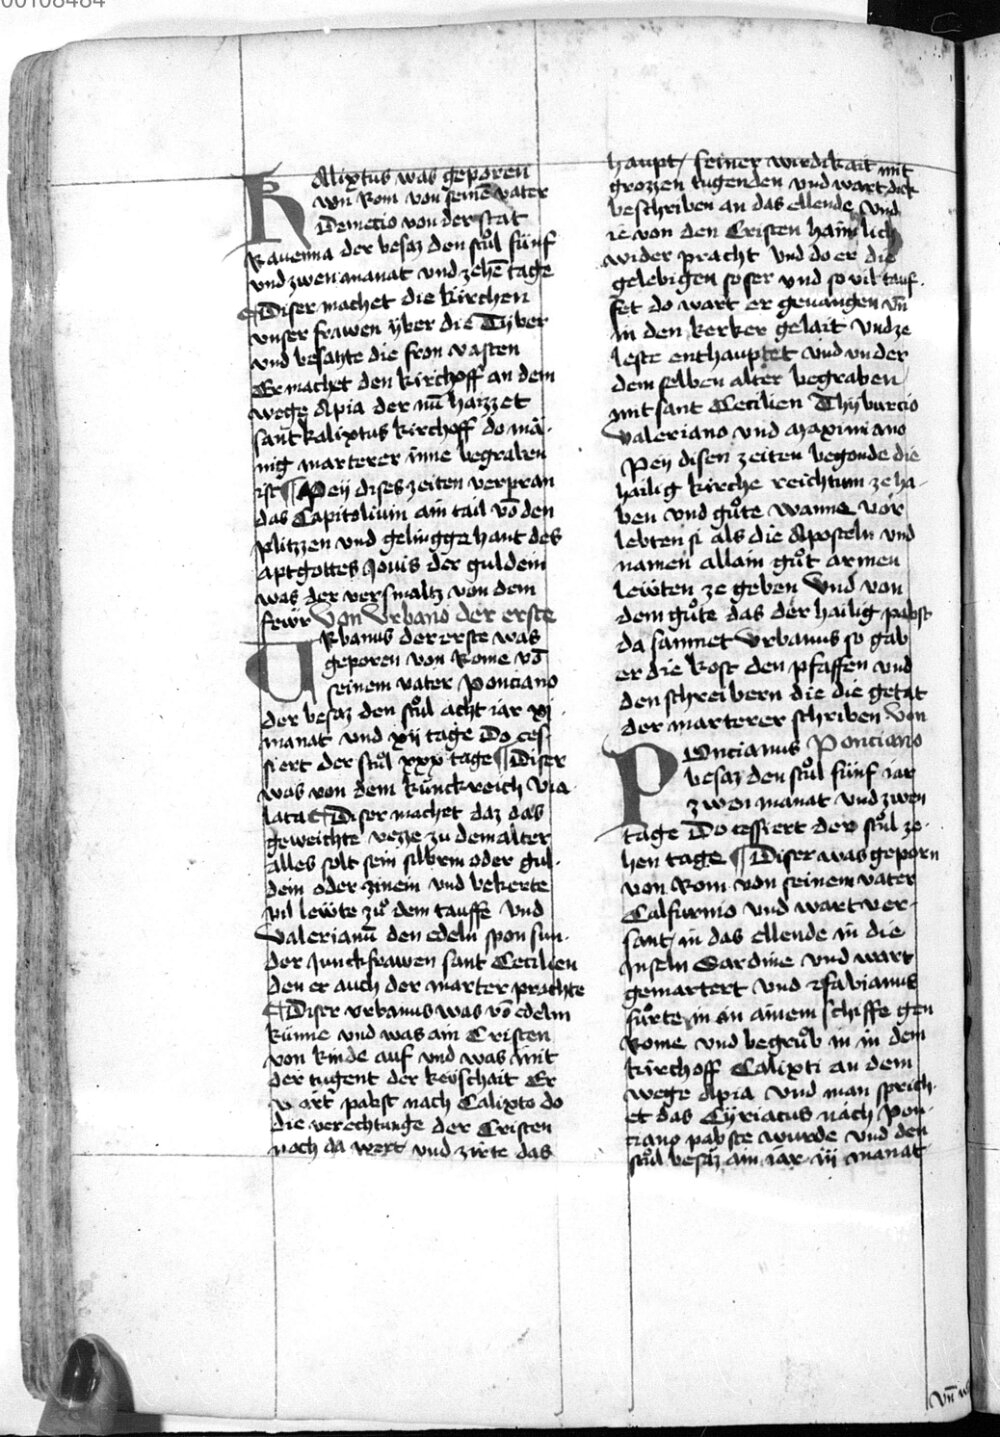 00108484
Kalixtus was geporen
von Rom von seinē vater
Demetio von der stat
Rauenna der besaz den stůl fünf
vnd zwen manat vnd zehē tage
¶ Diser machet die kirchen
vnser frawen yber die Tyber
vnd besatzte die fron vasten
Er machet den kirchoff an dem
wege Apia der nū haizzet
sant kalixtus kirchoff do mā-
nig marterer inne begraben
ist ¶ Pey dises zeiten verpran
das Capitolium ain tail vō den
plitzzen vnd gelingge hant des
aptgottes Jouis der guldein
was der versmaltz von dem
fewr Von Vrbano der erste
Vrbanus der erste was
geporen von Rome vō
seinem vater Ponciano
der besaz den stůl acht iar xj
manat vnd xij tage Do ces-
siert der stůl xxx tage ¶ Diser
was von dem kunckreich Via
lata ¶ Diser machet daz das
geweichte vezze zu dem alter
alles solt sein silbrin oder gul-
dein oder zinein vnd bekerte
vil lewte zů dem tauffe vnd
Valerianū den edeln spon sun-
der Junckfrawen sant Cecilien
den er auch der marter prachte
¶ Diser vrbanus was vō edelm
künne vnd was ain Cristen
von kinde auf vnd was mit
der tugent der kewschait Er
wart pabst nach Calixto do
die verechtunge der Cristen
noch da wert vnd zirte das
haupt seiner wirdikait mit
grozzen tugenden vnd wart dick
beschriben an das ellende vnd
ie von den Cristen haimlich
wider pracht vnd do er die
gelebigen so ser vnd so vil tauf-
fet do wart er geuangen vn̄
in den kerker gelait vnd ze
leste enthauptet vnd vnder
dem selben alter begraben
mit sant Cecilien Thyburcio
Valeriano vnd Maximiano
Pey disen zeiten begonde die
hailig kirche reichtum ze ha-
ben vnd gůte wanne vor
lebten si als die Aposteln vnd
namen allain gůt armen
lewten ze geben Vnd von
dem gůte das der hailig pabst
da samnet Vrbanus so gab
er die kost den pfaffen vnd
den schreibern die die getat
der marterer schriben Von
Poncianus Ponciano
besaz den stůl fünf iar
zwen manat vnd zwen
tage Do cessiert der stůl ze-
hen tage ¶ Diser was geporn
von Rom von seinem vater
Calfurnio vnd wart ver-
sant in das ellende in die
Inseln Sardine vnd wart
gemartert vnd Fabianus
fůrte in an ainem schiffe gen
Rome vnd begrůb in in dem
kirchoff Calixti an dem
wege Apia vnd man sprich-
et das Cyriacus nach Pon-
ciano pabste wurde vnd den
stůl besaz ain iar iij manat
vn̄